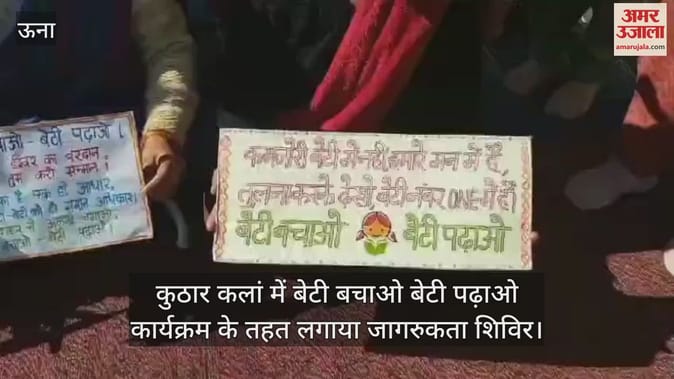 ऊना
अमर
उजाला
amarujala.com
बेटी पढ़ाओ।
का वरदान,
करो सम्मान।
कमजोरी बेटी में नहीं, हमारे मन में है,
तुलना करके देखो, बेटी नंबर ONE में है।
बेटी बचाओ बेटी पढ़ाओ
कुठार कलां में बेटी बचाओ बेटी पढ़ाओ
कार्यक्रम के तहत लगाया जागरुकता शिविर।